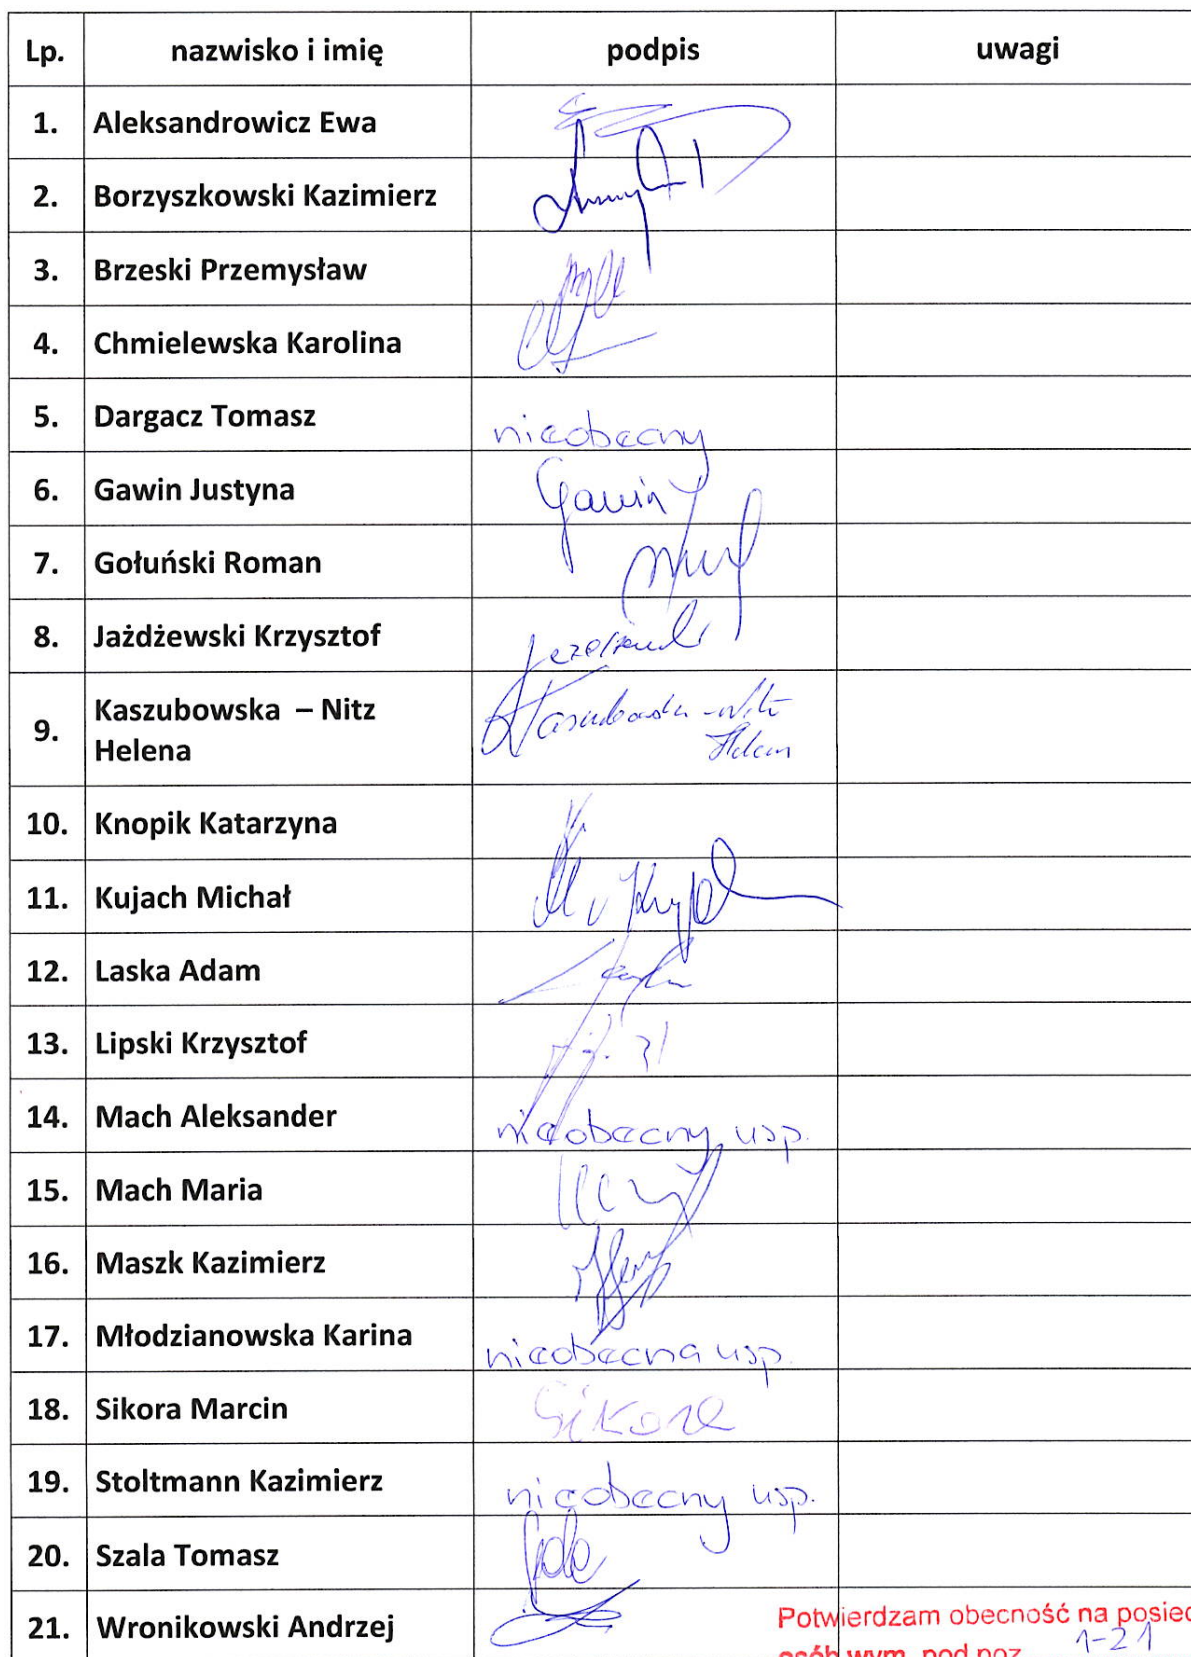 Lp. nazwisko i imię podpis uwagi
1. Aleksandrowicz Ewa
2. Borzyszkowski Kazimierz
3. Brzeski Przemysław
4. Chmielewska Karolina
5. Dargacz Tomasz nieobecny
6. Gawin Justyna Gawin J
7. Gołuński Roman
8. Jażdżewski Krzysztof
9. Kaszubowska – Nitz
Helena
Kaszubowska-Nitz
Helena
10. Knopik Katarzyna
11. Kujach Michał
12. Laska Adam
13. Lipski Krzysztof
14. Mach Aleksander nieobecny usp.
15. Mach Maria
16. Maszk Kazimierz
17. Młodzianowska Karina nieobecna usp.
18. Sikora Marcin Sikora
19. Stoltmann Kazimierz nieobecny usp.
20. Szala Tomasz
21. Wronikowski Andrzej
Potwierdzam obecność na posied
osób wym. pod poz. 1-21